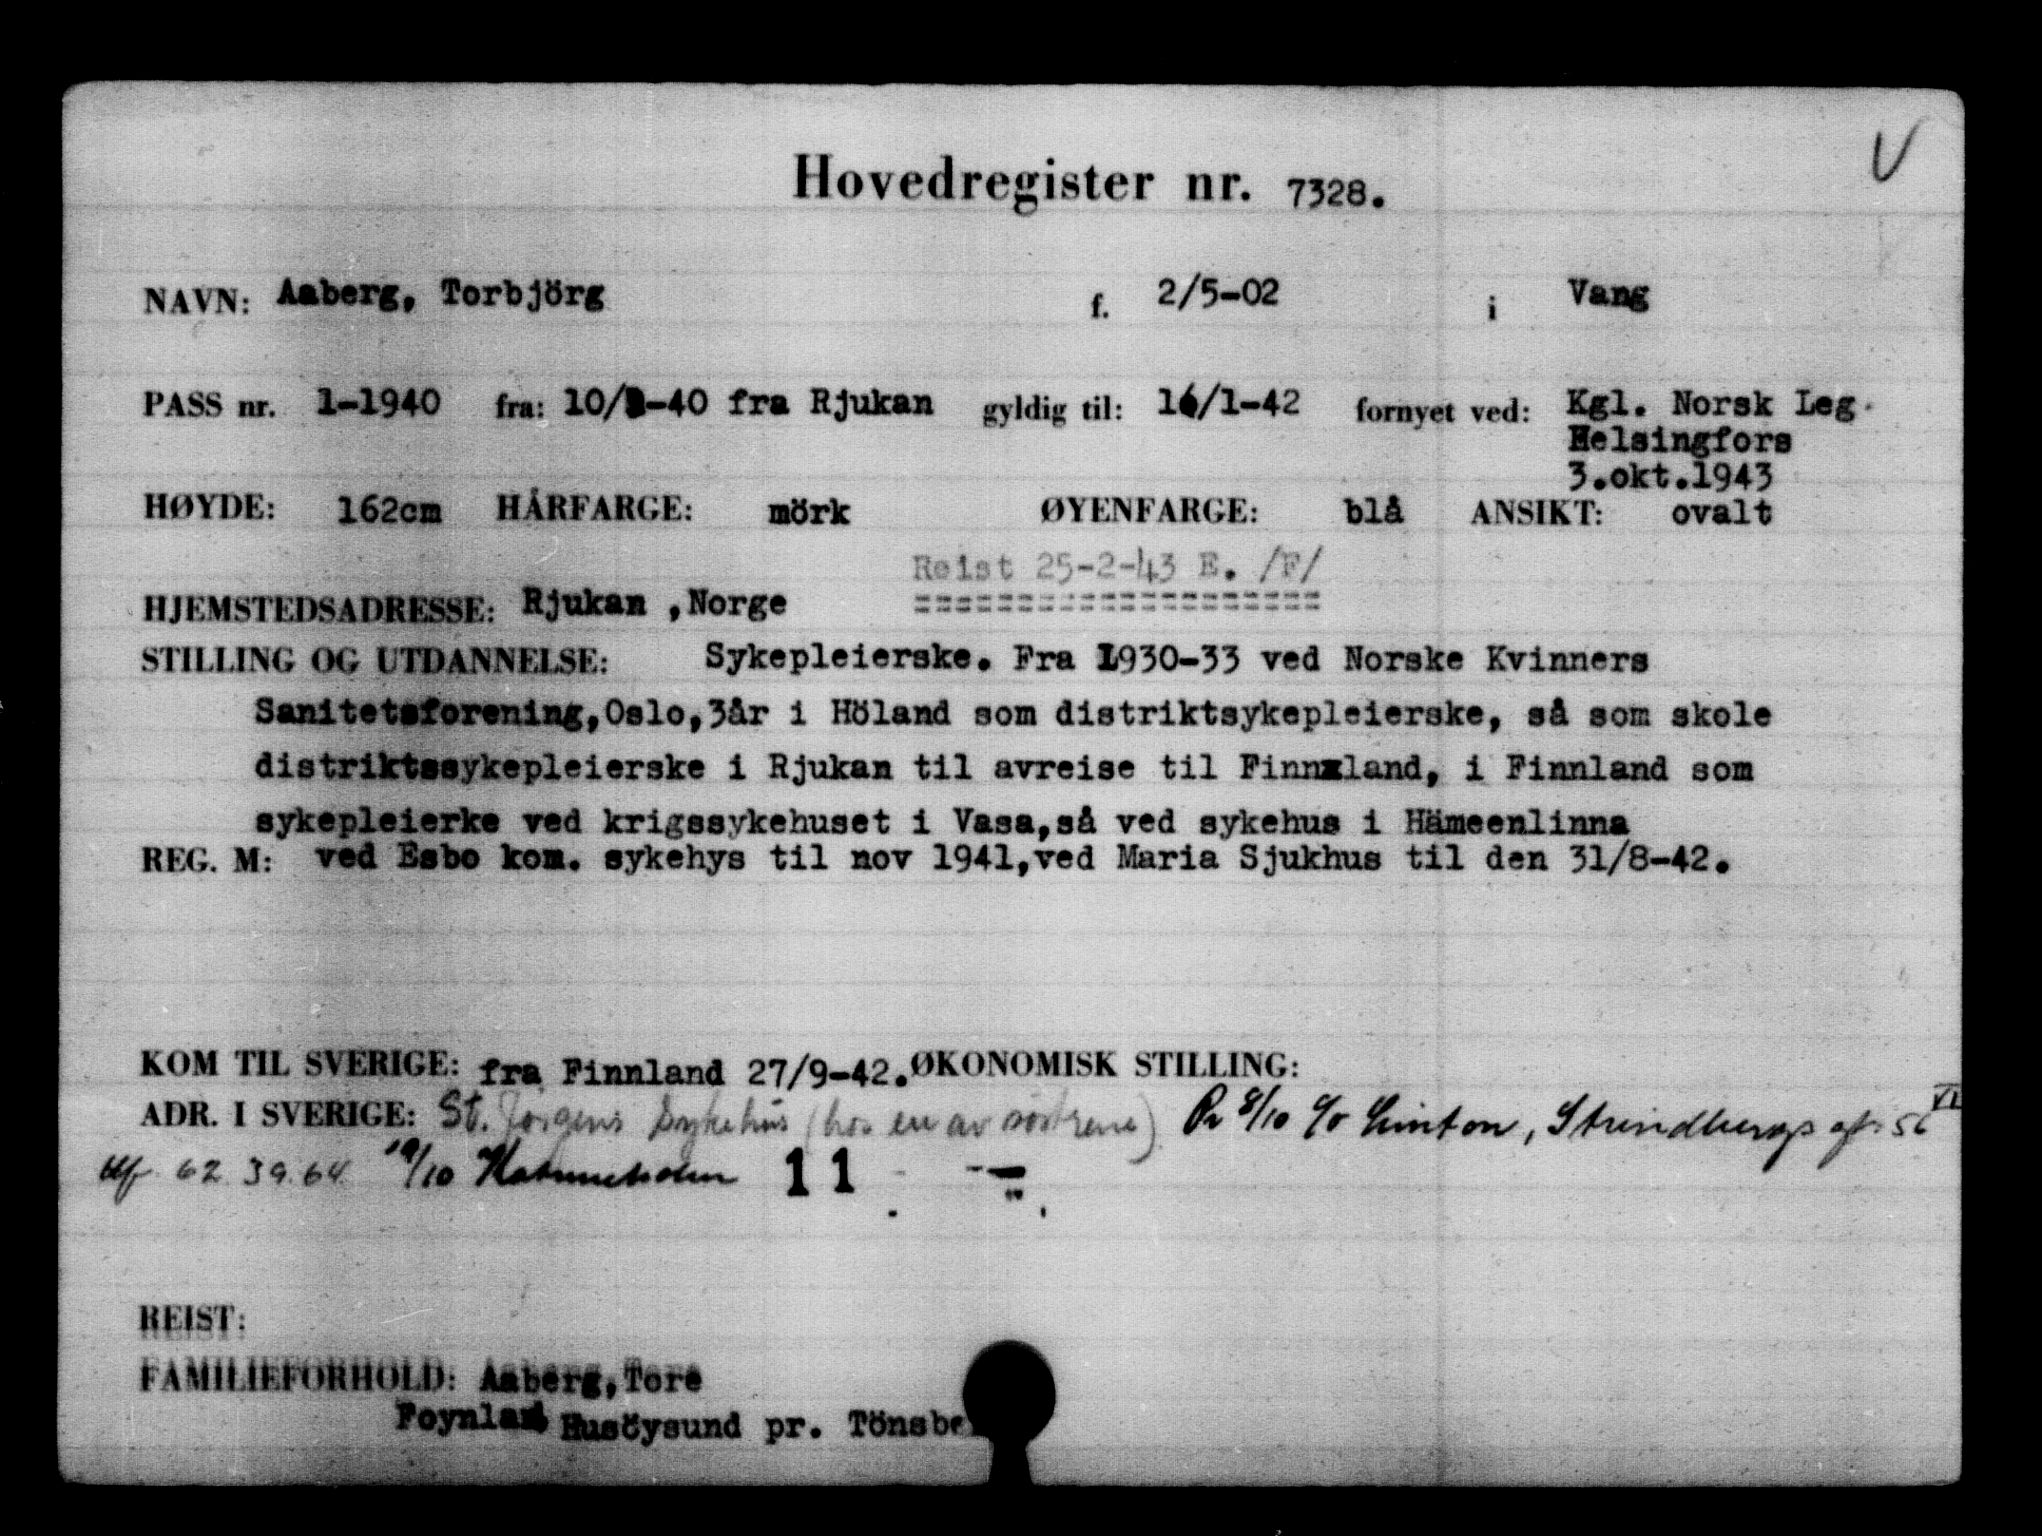 Hovedregister nr. 7328.
V
NAVN: Aaberg, Torbjörg f. 2/5-02 i Vang
PASS nr. 1-1940 fra: 10/1-40 fra Rjukan gyldig til: 16/1-42 fornyet ved: Kgl. Norsk Leg.
Helsingfors
3.okt.1943
HØYDE: 162cm HÅRFARGE: mörk ØYENFARGE: blå ANSIKT: ovalt
Reist 25-2-43 E. /F/
====================
HJEMSTEDSADRESSE: Rjukan ,Norge
STILLING OG UTDANNELSE: Sykepleierske. Fra 1930-33 ved Norske Kvinners
Sanitetsforening,Oslo,3år i Höland som distriktsykepleierske, så som skole
distriktssykepleierske i Rjukan til avreise til Finnland, i Finnland som
sykepleierke ved krigssykehuset i Vasa,så ved sykehus i Hämeenlinna
REG. M: ved Esbo kom. sykehys til nov 1941,ved Maria Sjukhus til den 31/8-42.
KOM TIL SVERIGE: fra Finnland 27/9-42. ØKONOMISK STILLING:
ADR. I SVERIGE: St. Jörgens Sykehus (hos en av söstrene) Pr 8/10 c/o Linton, Strindbergs gt. 56 VI
tlf. 62.39.64 19/10 11 - " -
REIST:
FAMILIEFORHOLD: Aaberg,Tore
Foynland Husöysund pr. Tönsbe